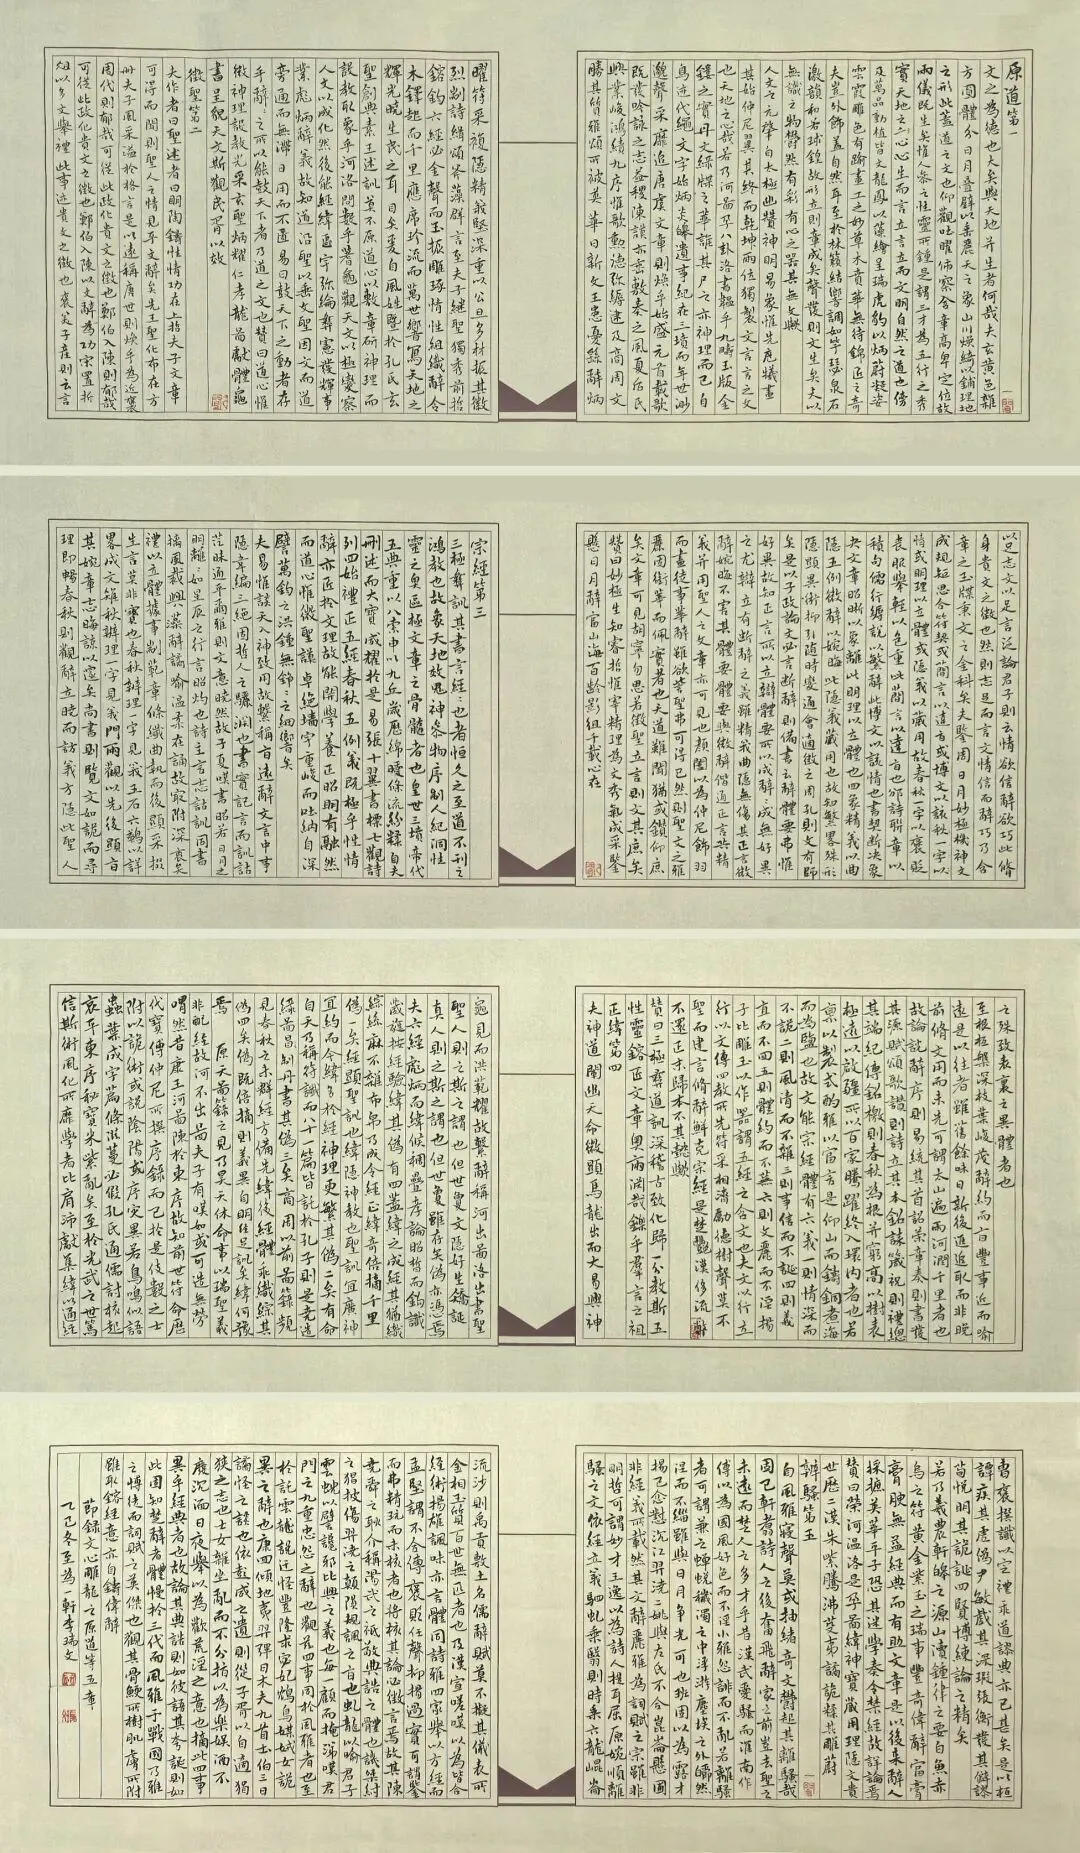 原道第一
文之為德也大矣與天地并生者何哉夫玄黃色雜
方圓體分日月疊璧以垂麗天之象山川煥綺以鋪理地
之形此蓋道之文也仰觀吐曜俯察含章高卑定位故
兩儀既生矣惟人參之性靈所鍾是謂三才為五行之秀
實天地之心心生而言立言立而文明自然之道也傍
及萬品動植皆文龍鳳以藻繪呈瑞虎豹以炳蔚凝姿
雲霞雕色有踰畫工之妙草木賁華無待錦匠之奇
夫豈外飾蓋自然耳至於林籟結響調如竽瑟泉石
激韻和若球鍠故形立則章成矣聲發則文生矣夫以
無識之物鬱然有彩有心之器其無文歟
人文之元肇自太極幽贊神明易象惟先庖犧畫
其始仲尼翼其終而乾坤兩位獨製文言言之文
也天地之心哉若乃河圖孕八卦洛書韞乎九疇玉版金
鏤之實丹文綠牒之華誰其尸之亦神理而已自
鳥迹代繩文字始炳炎皞遺事紀在三墳而年世渺
邈聲采靡追唐虞文章則煥乎始盛元首載歌
既發吟詠之志益稷陳謨亦垂敷奏之風夏后氏
興業峻鴻績九序惟歌勳德彌縟逮及商周文
勝其質雅頌所被英華日新文王患憂繇辭炳
曜符采複隱精義堅深重以公旦多材振其徽
烈剬詩緝頌斧藻群言至夫子繼聖獨秀前哲
鎔鈞六經必金聲而玉振雕琢情性組織辭令
木鐸起而千里應席珍流而萬世響寫天地之
輝光曉生民之耳目矣爰自風姓暨於孔氏玄
聖創典素王述訓莫不原道心以敷章研神理而
設教取象乎河洛問數乎蓍龜觀天文以極變察
人文以成化然後能經緯區宇彌綸彝憲發輝事
業彪炳辭義故知道沿聖以垂文聖因文而明道
旁通而無滯日用而不匱易曰鼓天下之動者存
乎辭辭之所以能鼓天下者乃道之文也贊曰道心惟
微神理設教光采玄聖炳耀仁孝龍圖獻體龜
書呈貌天文斯觀民胥以效
徵聖第二
夫作者曰聖述者曰明陶鑄性情功在上哲夫子文章
可得而聞則聖人之情見乎文辭矣先王聖化布在方
冊夫子風采溢於格言是以遠稱唐世則煥乎為近褒
周代則郁哉可從此政化貴文之徵也鄭伯入陳則郁哉
可從此政化貴文之徵也鄭伯入陳以文辭為功宋置折
俎以多文舉禮此事迹貴文之徵也褒美子產則云言
以足志文以足言泛論君子則云情欲信辭欲巧此脩
身貴文之徵也然則志足而言文情信而辭巧乃含
章之玉牒秉文之金科矣夫鑒周日月妙極機神文
成規矩思合符契或簡言以達旨或博文以該情
或明理以立體或隱義以藏用故春秋一字以褒貶
喪服舉輕以包重此簡言以達旨也邠詩聯章以
積句儒行縟說以繁辭此博文以該情也書契斷決象
夬文章昭晰以象離此明理以立體也四象精義以曲
隱五例微辭以婉晦此隱義以藏用也故知繁略殊形
隱顯異術抑引隨時變通會適徵之周孔則文有師
矣是以子政論文必徵於聖易稱辨物正言斷辭則備書云辭體要弗惟
好異故知正言所以立辯體要所以成辭辭成無好異
之尤辯立有斷辭之義雖精義曲隱無傷其正言微
辭婉晦不害其體要體要與微辭偕通正言共精
義并用聖人之文章亦可見也顏闔以為仲尼飾羽
而畫徒事華辭雖欲訾聖弗可得已然則聖文之雅
麗固銜華而佩實者也天道難聞猶或鑽仰
文章可見胡寧勿思若徵聖立言則文其庶矣
贊曰妙極生知睿哲惟宰精理為文秀氣成采鑒
懸日月辭富山海百齡影徂千載心在
宗經第三
三極彝訓其書言經經也者恒久之至道不刊之
鴻教也故象天地效鬼神參物序制人紀洞性
靈之奧區極文章之骨髓者也皇世三墳帝代
五典重以八索申以九丘歲歷綿曖條流紛糅自夫子
刪述而大寶咸耀於是易張十翼書標七觀詩
列四始禮正五經春秋五例義既極乎性情
辭亦匠於文理故能開學養正昭明有融然
而道心惟微聖謨卓絕墻宇重峻而吐納自深
譬萬鈞之洪鐘無錚錚之細響矣
夫易惟談天入神致用故繫稱旨遠辭文言中事
隱韋編三絕固哲人之驪淵也書實記言而訓詁
茫昧通乎爾雅則文意曉然故子夏嘆書昭昭若日月之
明離離如星辰之行言昭灼也詩主言志詁訓同書
摛風裁興藻辭譎喻溫柔在誦故最附深衷矣
禮以立體據事制範章條纖曲執而後顯采掇
生言莫非寶也春秋辨理一字見義五石六鷁以詳
略成文雉門兩觀以先後顯旨
其婉章志晦諒以邃矣尚書則覽文如詭而尋
理即暢春秋則觀辭立曉而訪義方隱此聖人
之殊致表裏之異體者也
至根柢槃深枝葉峻茂辭約而旨豐事近而喻
遠是以往者雖舊餘味日新後進追取而非晚
前脩文用而未先可謂太山遍雨河潤千里者也
故論說辭序則易統其首詔策章奏則書發
其源賦頌歌讚則詩立其本銘誄箴祝則禮總
其端紀傳銘檄則春秋為根并窮高以樹表
極遠以啟疆所以百家騰躍終入環內者也若
稟經以製式酌雅以富言是仰山而鑄銅煮海
而為鹽也故文能宗經體有六義一則情深而
不詭二則風清而不雜三則事信而不誕四則義
直而不回五則體約而不蕪六則文麗而不淫揚
子比雕玉以作器謂五經之含文也夫文以行立
行以文傳四教所先符采相濟勵德樹聲莫不師
聖而建言脩辭鮮克宗經是以楚豔漢侈流弊
不還正末歸本不其懿歟
贊曰三極彝道訓深稽古致化歸一分教斯五
性靈鎔匠文章奧府淵哉鑠乎羣言之祖
正緯第四
夫神道闡幽天命微顯馬龍出而大易興神
龜見而洪範耀故繫辭稱河出圖洛出書聖
聖人則之斯之謂也但世夐文隱好生矯誕
真雖存矣偽亦憑焉
夫六經彪炳而緯候稠疊孝論昭晳而鉤讖
葳蕤按經驗緯其偽有四蓋緯之成經其猶織
綜絲麻不雜布帛乃成今經正緯奇倍擿千里
偽一矣經顯聖訓也緯隱神教也聖訓宜廣神教
宜約而今緯多於經神理更繁其偽二矣有命
自天乃稱符讖而八十一篇皆託於孔子則是堯造
綠圖昌制丹書其偽三矣商周以前圖籙頻
見春秋之末群經方備先緯後經體乖織綜其
偽四矣偽既倍摘則義異自明經足訓矣緯何豫
焉 原夫圖籙之見乃昊天休命事以瑞聖義
非配經故河不出圖夫子有嘆如或可造無勞
喟然昔康王河圖陳於東序故知前世符命歷
代寶傳仲尼所撰序錄而已於是伎數之士
附以詭術或說陰陽或序災異若鳥鳴似語
蟲葉成字篇條滋蔓必假孔氏通儒討核起
哀平東序秘寶朱紫亂矣至於光武之世篤
信斯術風化所靡學者比肩沛獻集緯以通經
曹褒撰讖以定禮乖道謬典亦已甚矣是以桓
譚疾其虛偽尹敏戲其深瑕張衡發其僻謬
荀悅明其詭誕四賢博練論之精矣
若乃羲農軒皞之源山瀆鍾律之要白魚赤
烏之符黃金紫玉之瑞事豐奇偉辭富膏
膏腴無益經典而有助文章是以後來辭人
採摭英華平子恐其迷學奏令禁經故詳論焉
贊曰榮河溫洛是孕圖緯神寶藏用理隱文貴
世歷二漢朱紫騰沸芟夷譎詭糅其雕蔚
辨騷第五
自風雅寢聲莫或抽緒奇文鬱起其離騷哉
固已軒翥詩人之後奮飛辭家之前豈去聖之
未遠而楚人之多才乎昔漢武愛騷而淮南作
傳以為國風好色而不淫小雅怨誹而不亂若離騷
者可謂兼之蟬蛻穢濁之中浮游塵埃之外皭然
涅而不緇雖與日月争光可也班固以為露才
揚己忿懟沉江羿澆二姚與左氏不合崑崙懸圃
非經義所載然其文辭麗雅為詞賦之宗雖非
明哲可謂妙才王逸以為詩人提耳屈原婉順離
騷之文依經立義駟虬乘翳則時乘六龍崐崙
流沙則禹貢敷土名儒辭賦莫不擬其儀表所謂
金相玉質百世無匹者也及漢宣嗟嘆以為皆合
經術揚雄諷味亦言體同詩雅四家舉以方經而
孟堅謂不合傳褒貶任聲抑揚過實可謂鑒
而弗精玩而未核者也將核其論必徵言焉故其陳
堯舜之耿介稱湯武之祗敬典誥之體也譏桀紂
之猖披傷羿澆之顛隕規諷之旨也虬龍以喻君子
雲蜺以譬讒邪比興之義也每一顧而掩涕嘆君
門之九重忠怨之辭也觀茲四事同於風雅者也至
於託雲龍說迂怪豐隆求宓妃鴆鳥媒娀女詭
異之辭也康回傾地夷羿彃日木夫九首土伯三目
譎怪之談也依彭咸之遺則從子胥以自適狷
狹之志也士女雜坐亂而不分指以為樂娛酒不
廢沉湎日夜舉以為歡荒淫之意也摘此四事
異乎經典者也故論其典誥則如彼語其夸誕則如
此固知楚辭者體慢於三代而風雅於戰國乃雅頌
之博徒而詞賦之英傑也觀其骨鯁所樹肌膚所附
雖取鎔經意亦自鑄偉辭
節錄文心雕龍之原道等五章
乙巳冬至為軒李瑞文